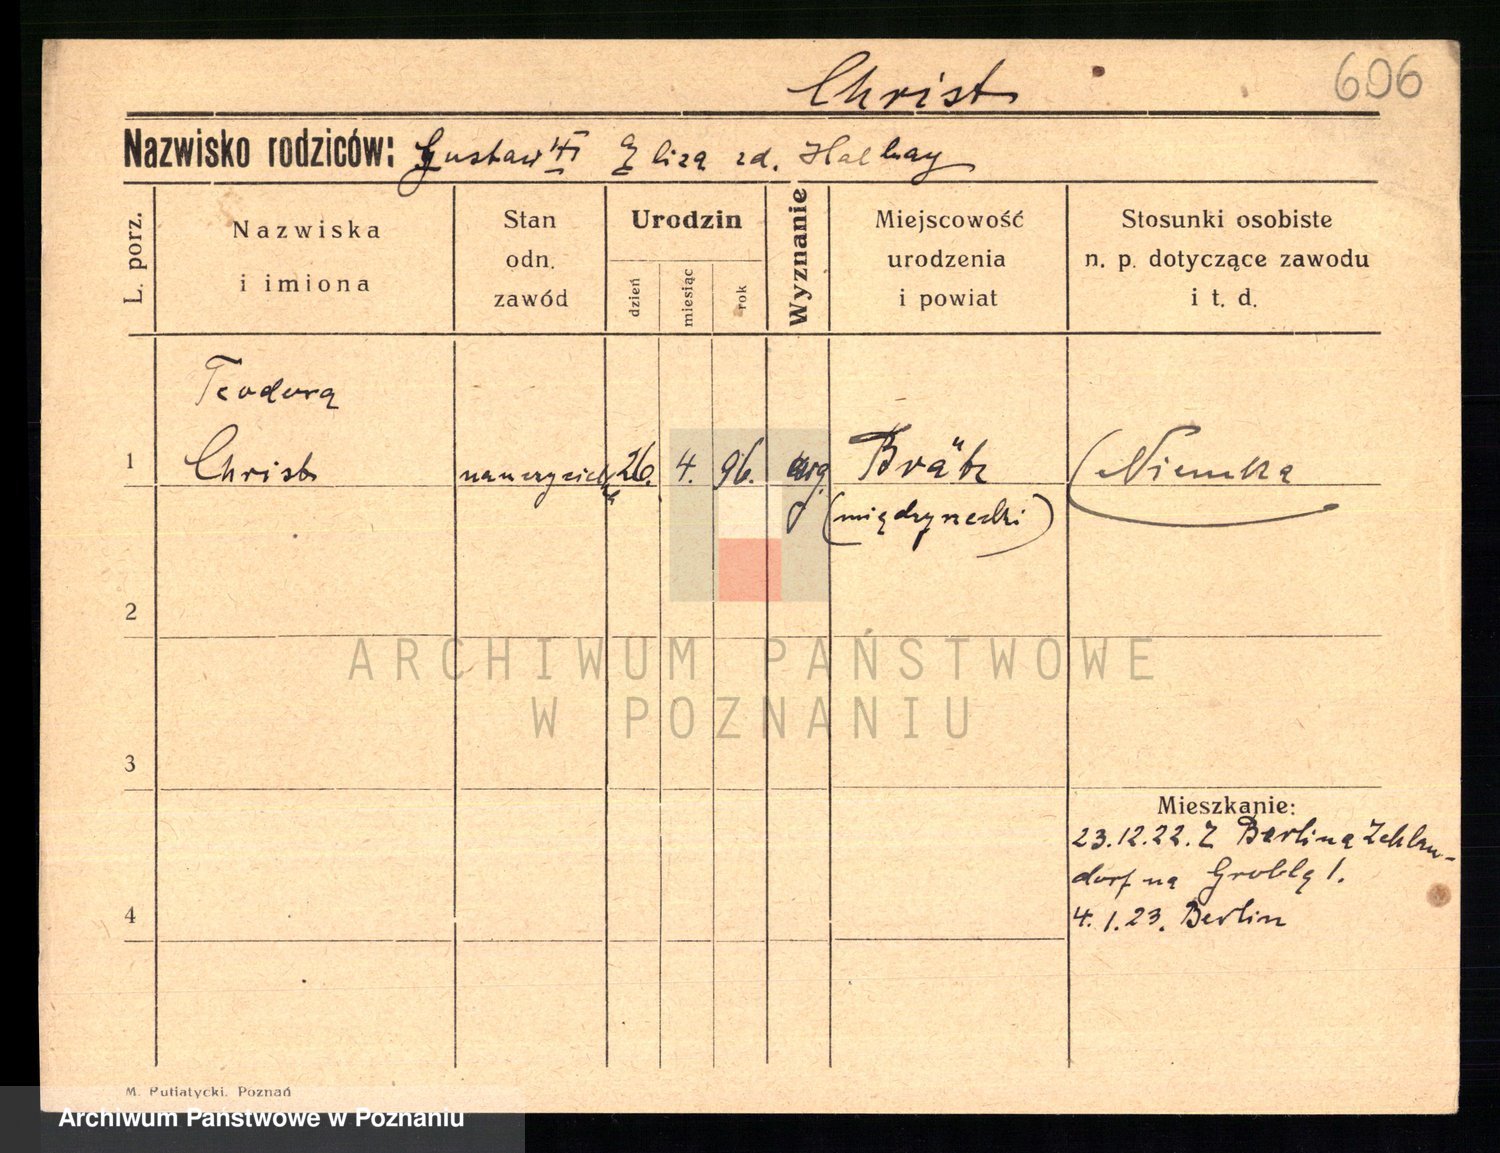 Christ
606
Nazwisko rodziców: Gustaw Eliza zd.
L. porz.
Nazwiska
i imiona
Stan
odn.
zawód
Urodzin
dzień
miesiąc
rok
Wyznanie
Miejscowość
urodzenia
i powiat
Stosunki osobiste
n. p. dotyczące zawodu
i t. d.
Teodora
1 Christ 26. 4. 96. Brätz Niemka
2
ARCHIWUM PAŃSTWOWE
W POZNANIU
3
Mieszkanie:
23.12.22. Z Berlina Zehlen-
dorf na Grobla 1.
4
4.1.23. Berlin
M. Putiatycki. Poznań
Archiwum Państwowe w Poznaniu